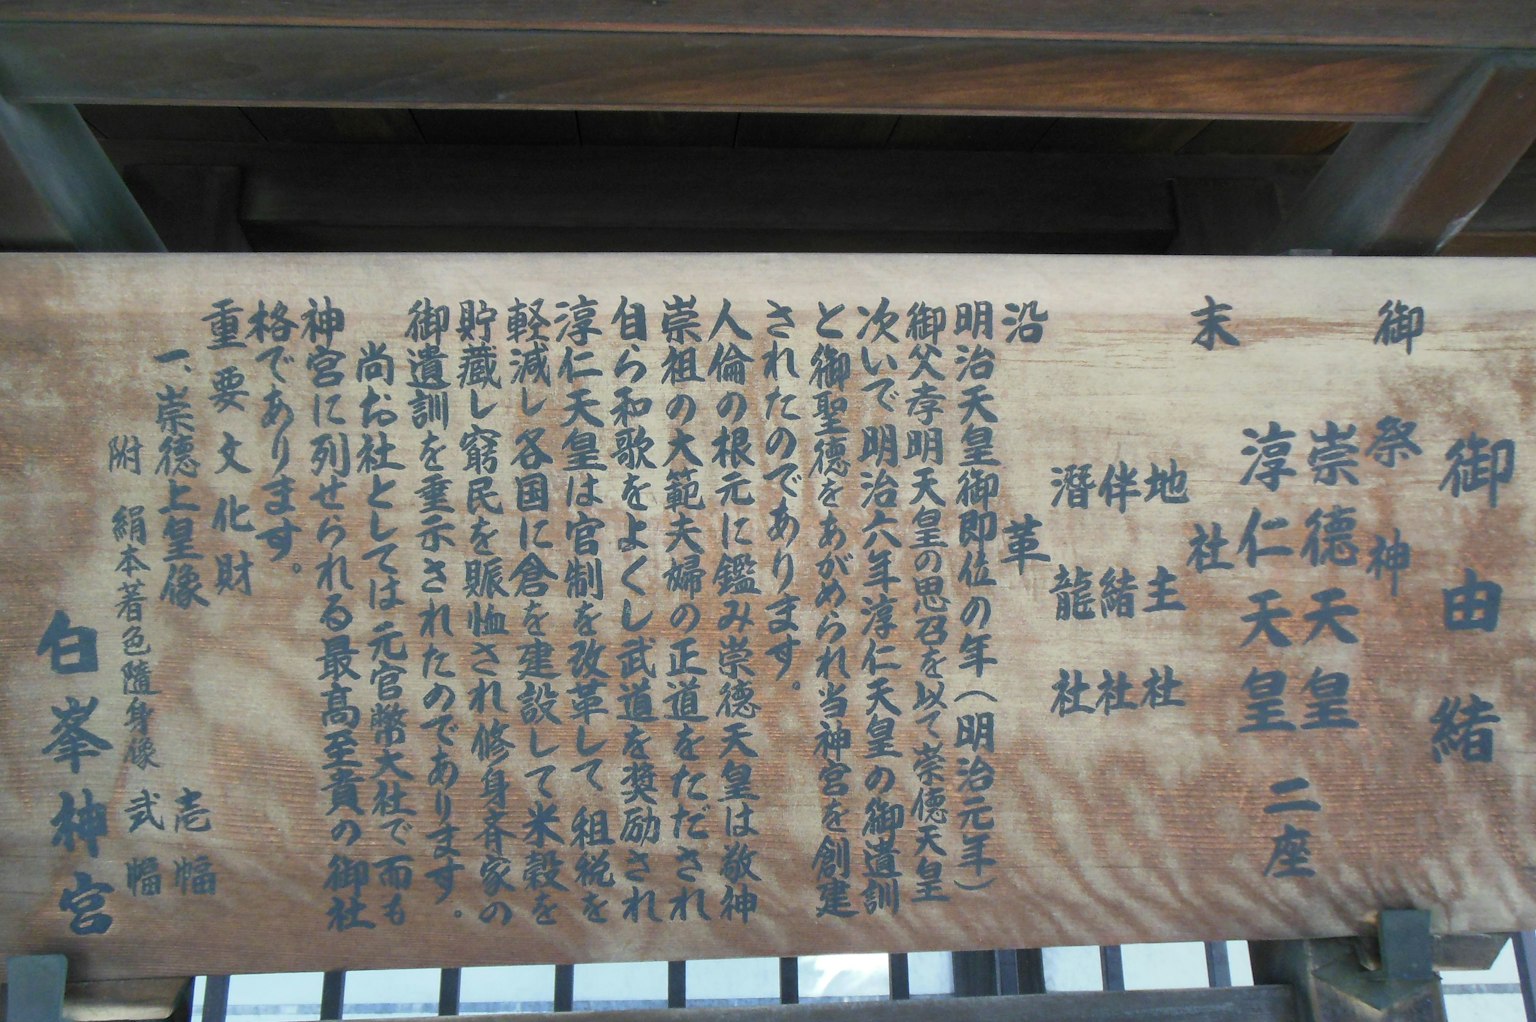 御由緒
御祭神
崇徳天皇
淳仁天皇 二座
末社
地主社
伴緒社
潜龍社
沿革
明治天皇御即位の年(明治元年)
御父孝明天皇の思召を以て崇徳天皇
次いで明治六年淳仁天皇の御遺訓
と御聖徳をあがめられ当神宮を創建
されたのであります。
人倫の根元に鑑み崇徳天皇は敬神
崇祖の大範夫婦の正道をただされ
自ら和歌をよくし武道を奨励され
淳仁天皇は官制を改革して租税を
軽減し各国に倉を建設して米穀を
貯蔵し窮民を賑恤され修身斉家の
御遺訓を垂示されたのであります。
尚お社としては元官幣大社で而も
神宮に列せられる最高至貴の御社
格であります。
重要文化財
一、崇徳上皇像 壱幅
附 絹本著色随身像 弐幅
白峯神宮